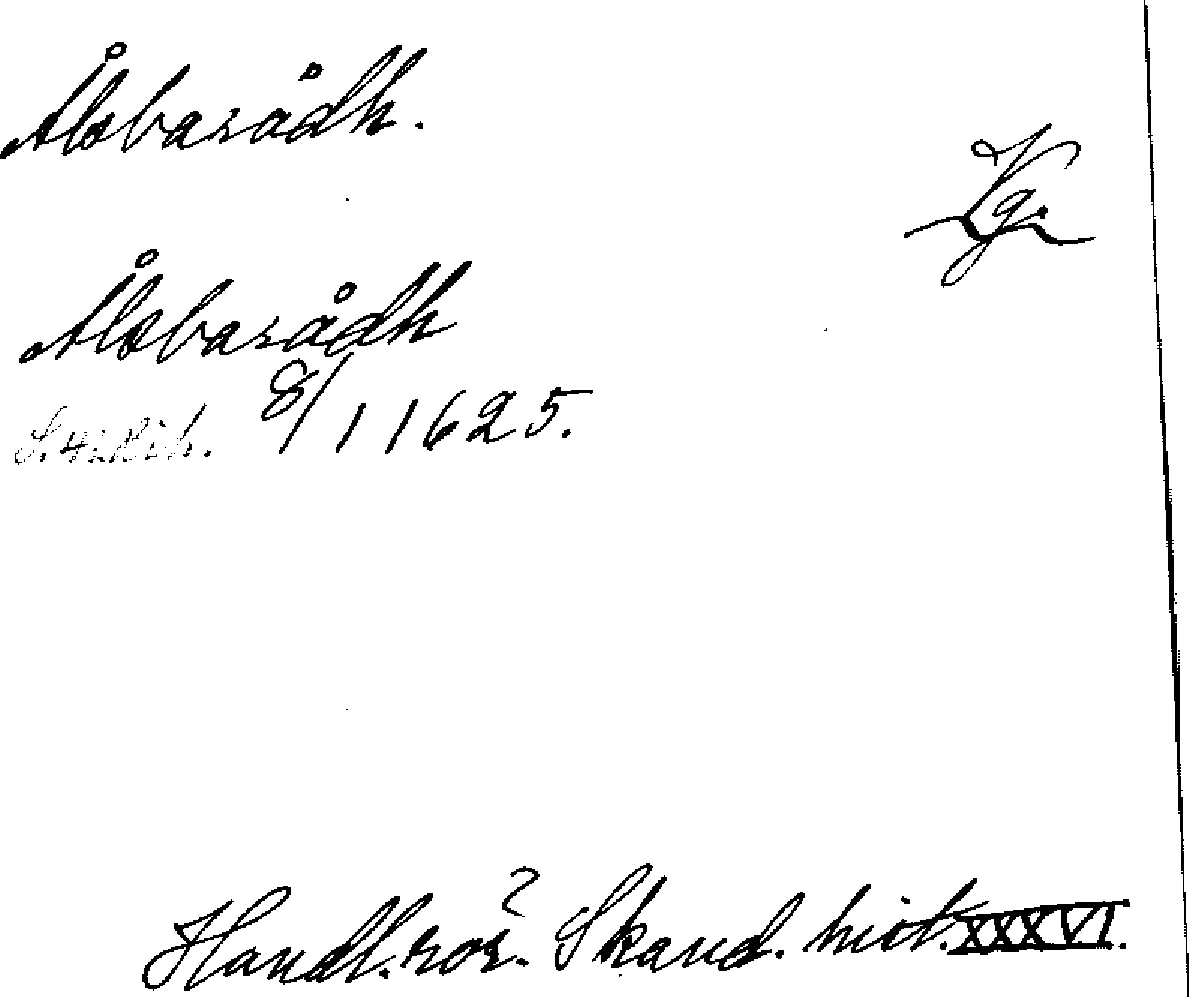 Ålsbarådh.
Vg.
Ålsbarådh
8/1 1625.
Handl. rör. Skand. hist. XXXVI.